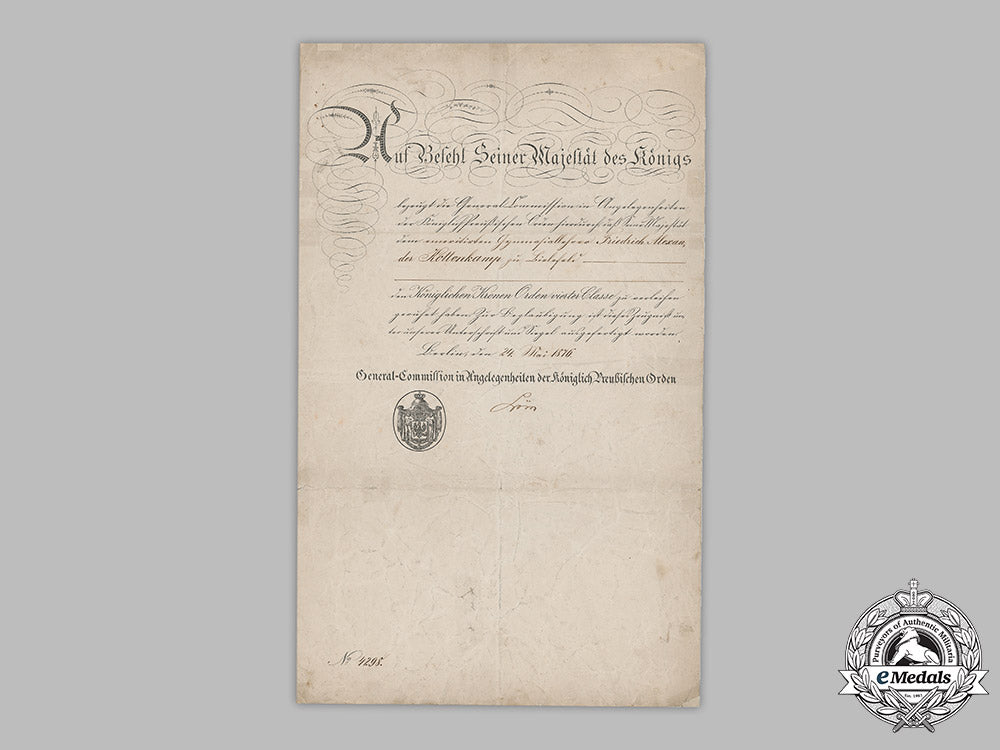 Auf Befehl Seiner Majestät des Königs
bezeugt die General-Commission in Angelegenheiten
der Königlich Preußischen Orden hierdurch daß Seine Majestät
dem emeritirten Gymnasiallehrer Friedrich Alexan
der Kottenkamp zu Bielefeld
den Königlichen Kronen Orden vierter Classe zu verleihen
geruhet haben. Zur Beglaubigung ist dieses Zeugniß un
ter unserer Unterschrift und Siegel ausgefertigt worden.
Berlin, den 24. Mai 1876.
General-Commission in Angelegenheiten der Königlich Preußischen Orden
No 4298.
Purveyors of Authentic Militaria
eMedals